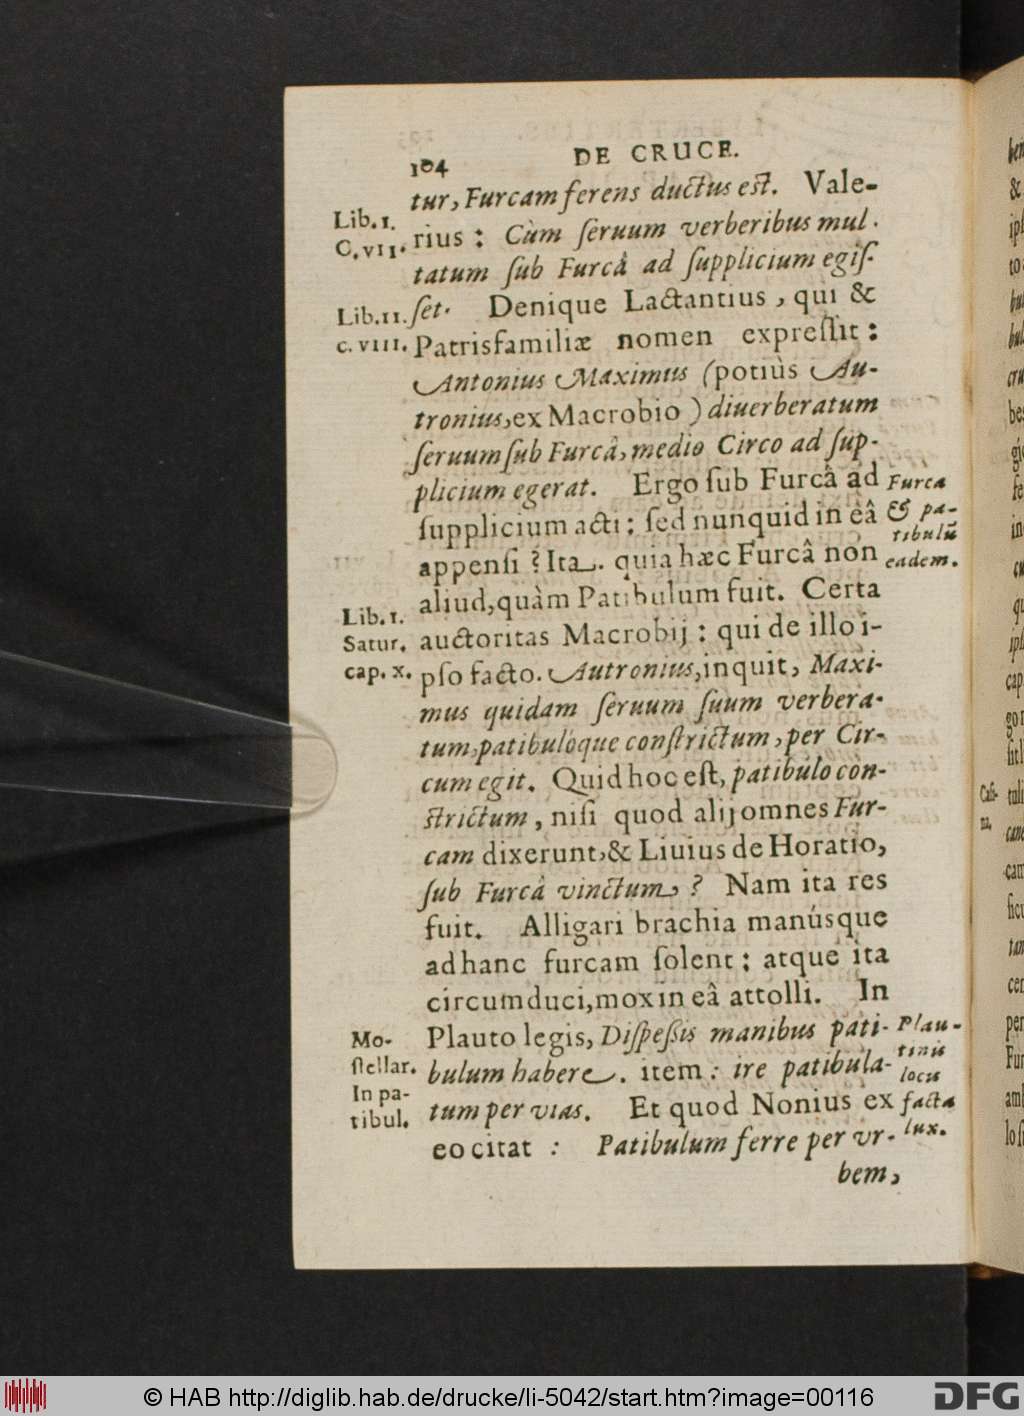 104 DE CRUCE.
tur, Furcam ferens ductus est. Vale-
Lib. I.
C. VII.
rius: Cùm ſeruum verberibus mul-
tatum ſub Furcâ ad ſupplicium egiſ-
Lib. II.
c. VIII.
ſet. Denique Lactantius, qui &
Patrisfamiliæ nomen expreſſit:
Antonius Maximus (potiùs Au-
tronius, ex Macrobio) diuerberatum
ſeruum ſub Furcâ, medio Circo ad ſup-
plicium egerat. Ergo ſub Furcâ ad
Furca
& pa-
tibulū
eadem.
ſupplicium acti: ſed nunquid in eâ
appenſi? Ita. quia hæc Furcâ non
aliud, quàm Patibulum fuit. Certa
Lib. I.
Satur.
cap. X.
auctoritas Macrobij: qui de illo i-
pſo facto. Autronius, inquit, Maxi-
mus quidam ſeruum ſuum verbera-
tum, patibulóque conſtrictum, per Cir-
cum egit. Quid hoc eſt, patibulo con-
strictum, niſi quod alij omnes Fur-
cam dixerunt, & Liuius de Horatio,
ſub Furcâ vinctum,? Nam ita res
fuit. Alligari brachia manúsque
ad hanc furcam ſolent: atque ita
circumduci, mox in eâ attolli. In
Mo-
ſtellar.
In pa-
tibul.
Plauto legis, Diſpeſsis manibus pati-
bulum habere. item: ire patibula-
tum per vias. Et quod Nonius ex
eo citat : Patibulum ferre per vr-
Plau-
tinis
locis
facta
lux.
bem,
© HAB http://diglib.hab.de/drucke/li-5042/start.htm?image=00116
DFG